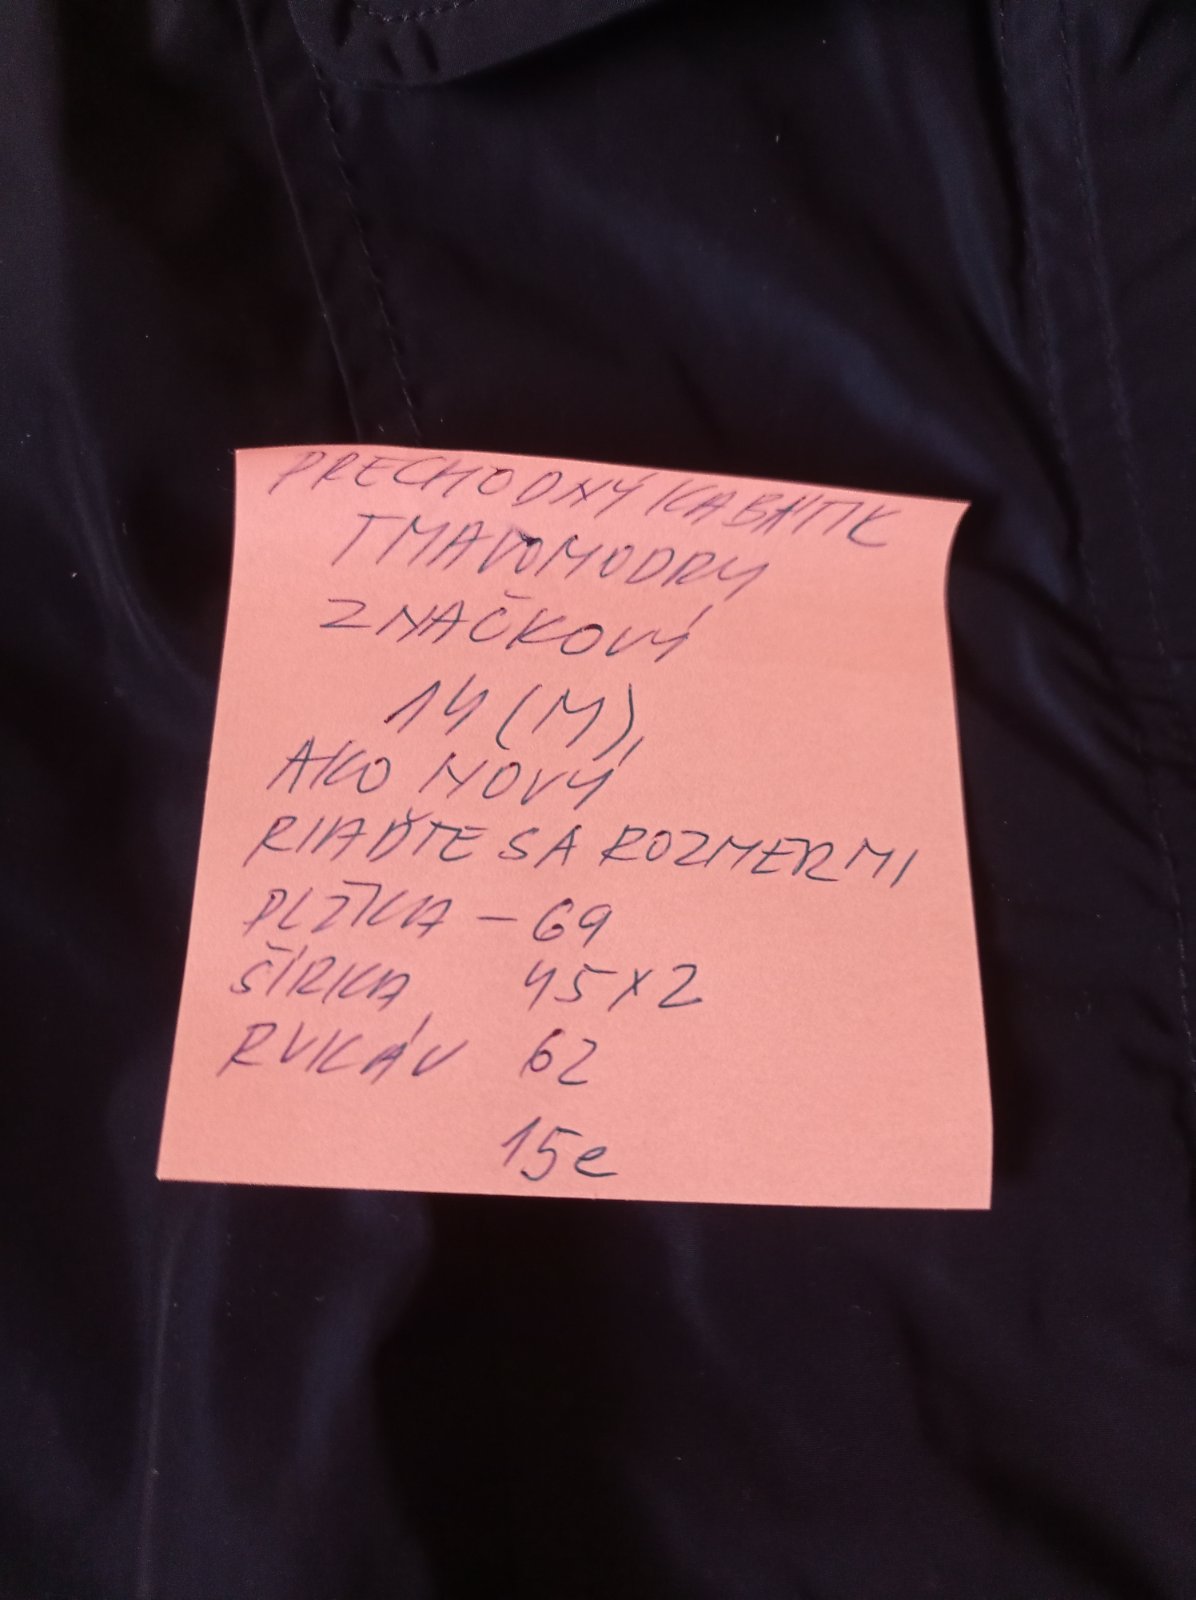 PRECHODNÝ KABÁTIK
TMAVOMODRY
ZNAČKOVÝ
14 (M),
AKO NOVÝ
RIAĎTE SA ROZMERMI
DĹŽKA - 69
ŠÍRKA 45 x 2
RUKÁV 62
15e